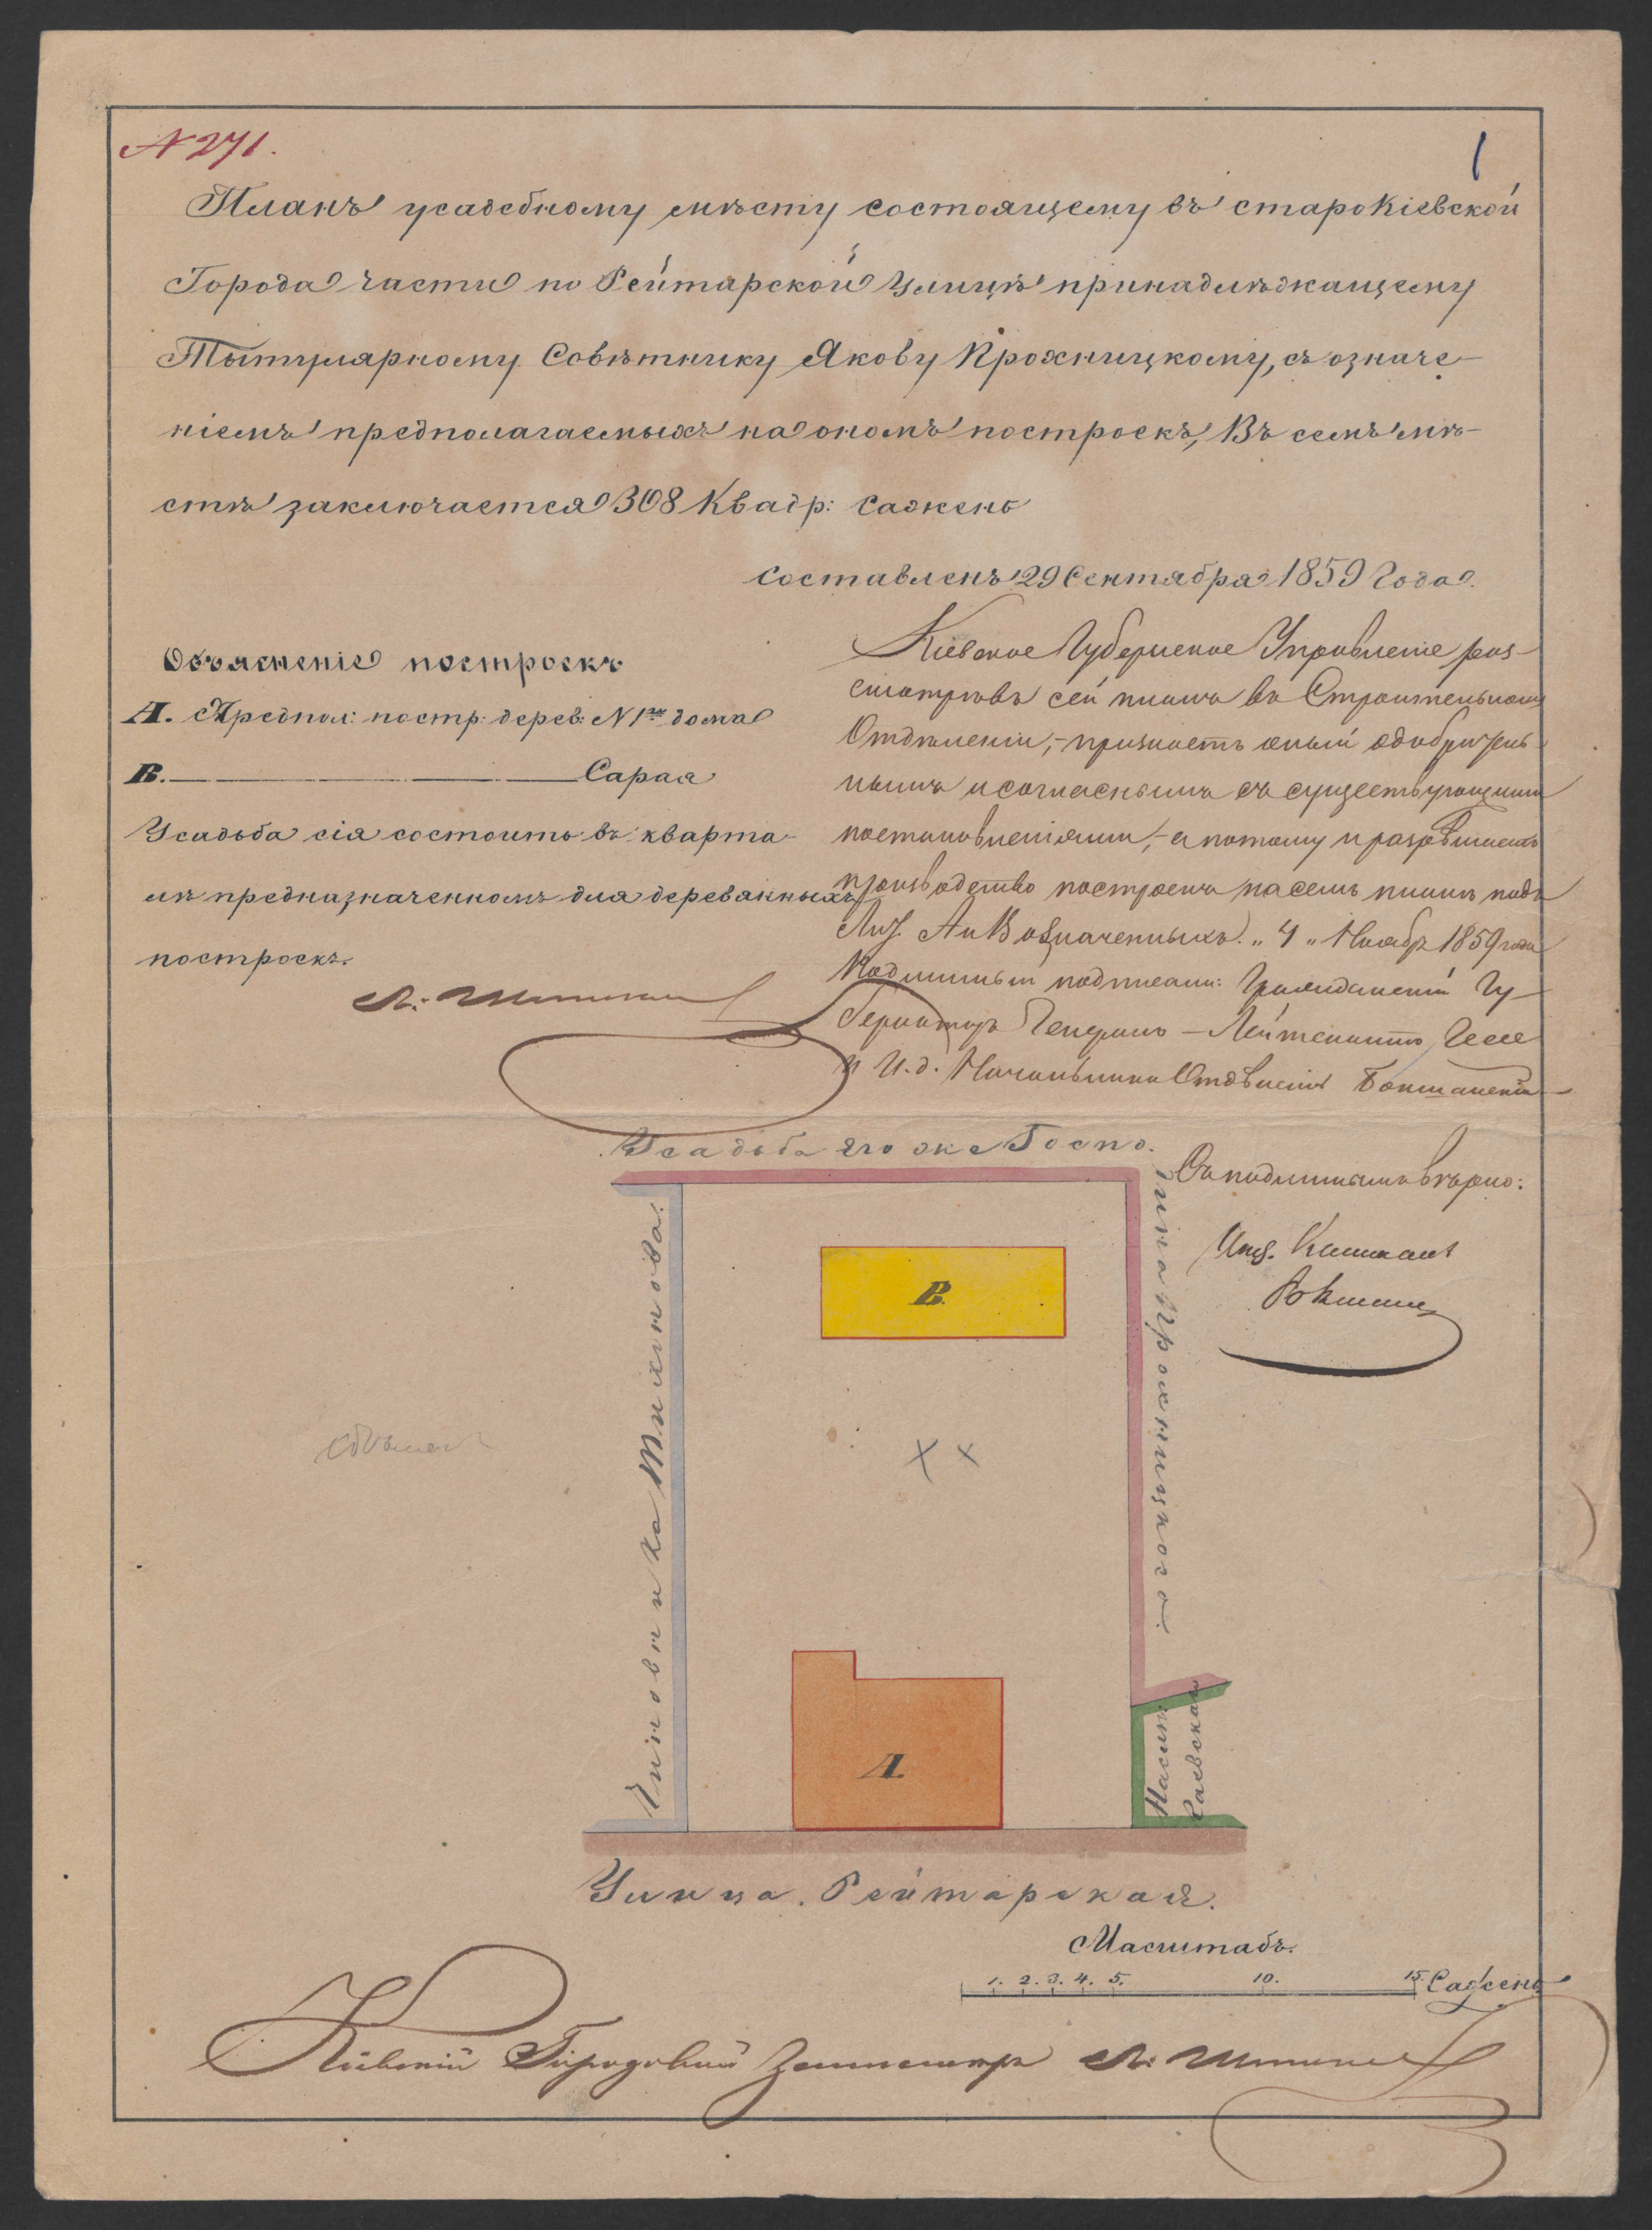 N 271.
1
Планъ усадебному мѣсту состоящему въ староКіевской
Города части по Рейтарской Улицѣ принадлѣжащему
Тытулярному Совѣтнику Якову Крохницкому, съ означе-
ніемъ предполагаемыхъ на ономъ построекъ, Въ семъ мѣ-
стѣ заключается 308 Квадр: Сажень
Составленъ 29 Сентября 1859 Года.
Объясненіе построекъ
А. Предпол: постр: дерев: N 1го дома
В. Сарая
Усадьба сія состоитъ въ кварта-
лѣ предназначенномъ для деревянныхъ
построекъ.
Кіевское Губернское Управленіе раз-
смотрѣвъ сей планъ въ Строительномъ
Отдѣленіи, признаетъ оный одобритель-
нымъ и согласнымъ съ существующими
постановленіями, а потому и разрѣшаетъ
производство построекъ на семъ планѣ подъ
Лит. А и В означенныхъ. "4" Ноябр 1859 года
Подлинный подписали: Гражданскій Гу-
бернаторъ Генералъ-Лейтенантъ Гессе
и И.д. Начальника Отдѣленія
Съ подлиннымъ вѣрно:
Усадьба его же Госпо.
дина Крохницкого.
Чиновника Михнова.
В.
А.
Улица Рейтарская.
Масштабъ.
1. 2. 3. 4. 5. 10. 15. Сажень
Кіевскій Городовый Землемѣръ